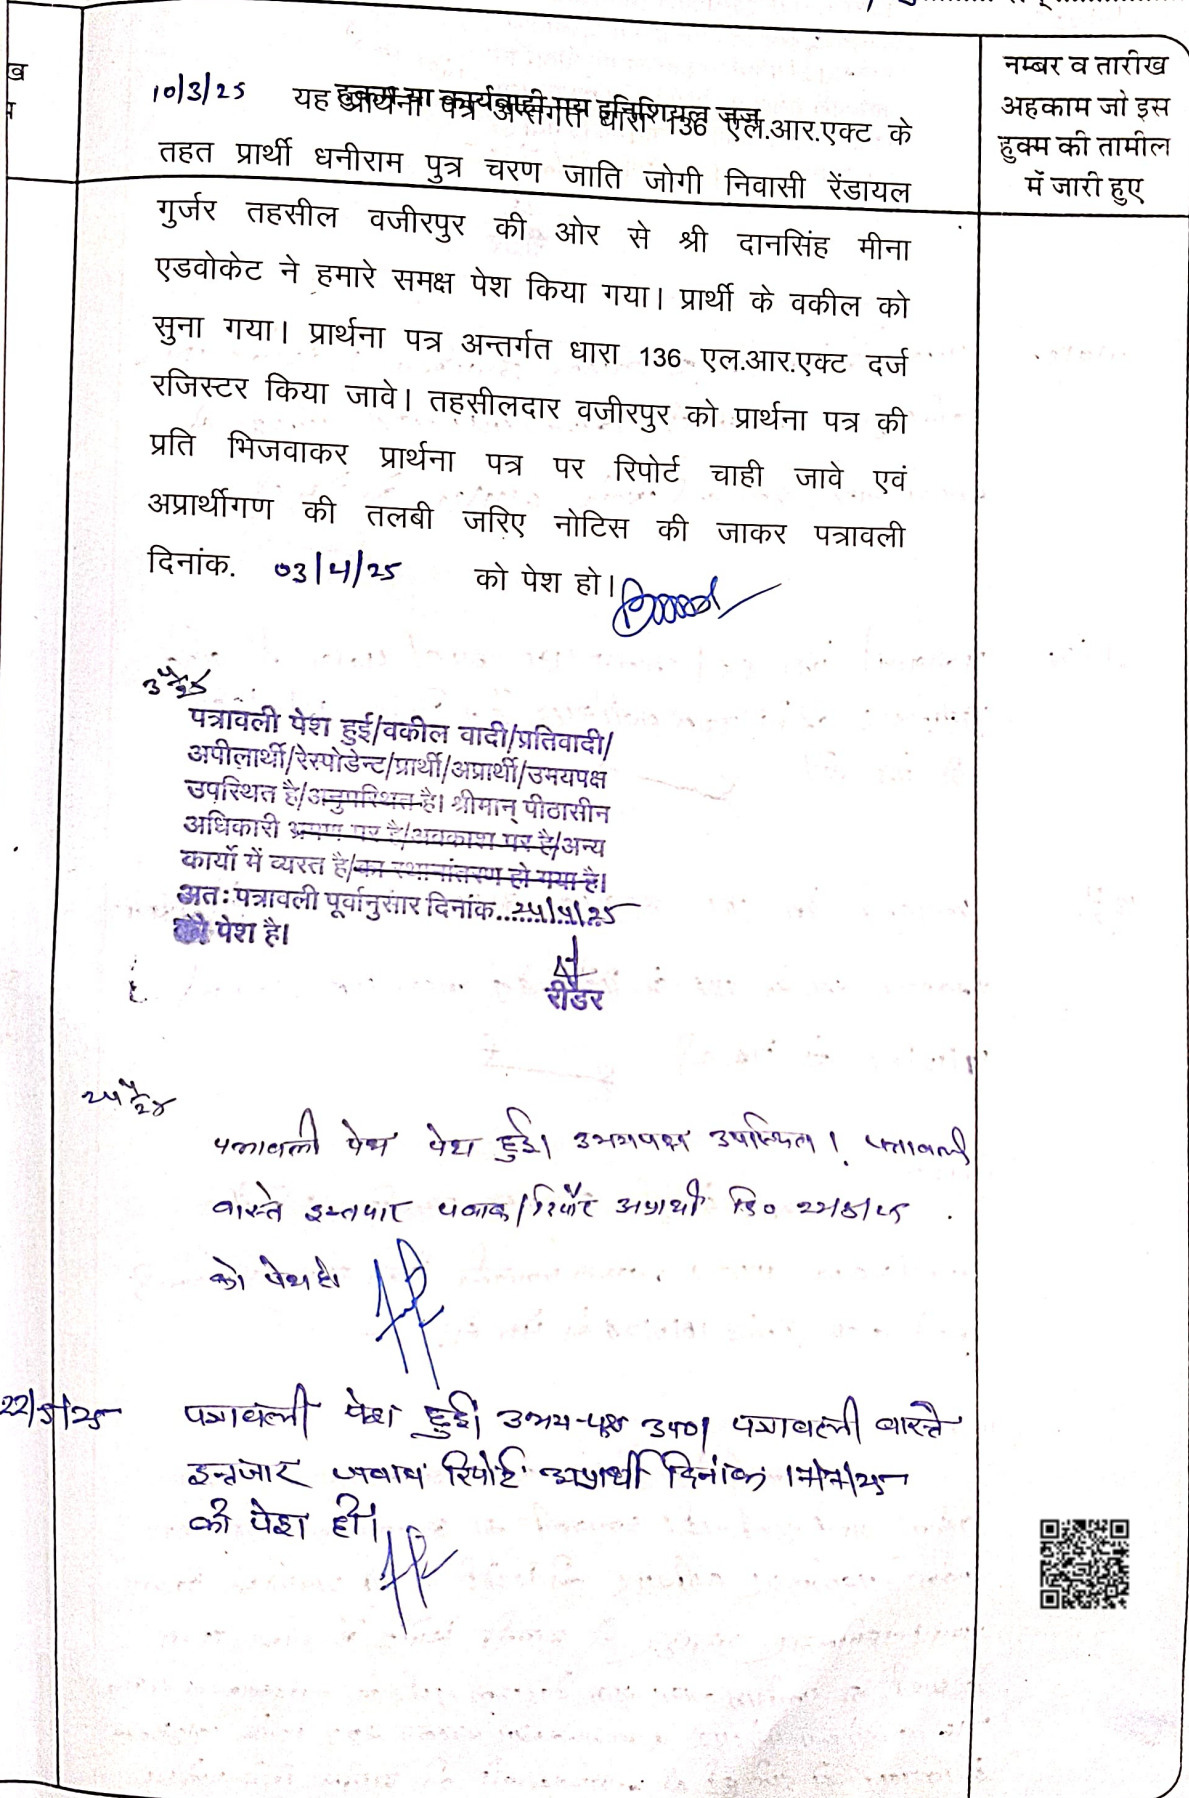 ख
नम्बर व तारीख
अहकाम जो इस
हुक्म की तामील
में जारी हुए
हुक्म या कार्यवाही मय इनिशियल जज
10/3/25 यह प्रार्थना पत्र अन्तर्गत धारा 136 एल.आर.एक्ट के
तहत प्रार्थी धनीराम पुत्र चरण जाति जोगी निवासी रेंडायल
गुर्जर तहसील वजीरपुर की ओर से श्री दानसिंह मीना
एडवोकेट ने हमारे समक्ष पेश किया गया। प्रार्थी के वकील को
सुना गया। प्रार्थना पत्र अन्तर्गत धारा 136 एल.आर.एक्ट दर्ज
रजिस्टर किया जावे। तहसीलदार वजीरपुर को प्रार्थना पत्र की
प्रति भिजवाकर प्रार्थना पत्र पर रिपोर्ट चाही जावे एवं
अप्रार्थीगण की तलबी जरिए नोटिस की जाकर पत्रावली
दिनांक. 03/4/25 को पेश हो।
पत्रावली पेश हुई/वकील वादी/प्रतिवादी/
अपीलार्थी/रेस्पोडेन्ट/प्रार्थी/अप्रार्थी/उभयपक्ष
उपस्थित है/अनुपस्थित है। श्रीमान् पीठासीन
अधिकारी भ्रमण पर है/अवकाश पर है/अन्य
कार्यो में व्यस्त है/का स्थानांतरण हो गया है।
अतः पत्रावली पूर्वानुसार दिनांक..24/4/25
को पेश है।
रीडर
पत्रावली पेश पेश हुई। उभयपक्ष उपस्थित। पत्रावली
वास्ते इन्तजार जवाब/रिपोर्ट अप्रार्थी दि० 22/5/25
को पेश हो।
22/5/25 पत्रावली पेश हुई। उभय-पक्ष उप०। पत्रावली वास्ते
इन्तजार जवाब रिपोर्ट अप्रार्थी दिनांक 17/7/25
को पेश हो।